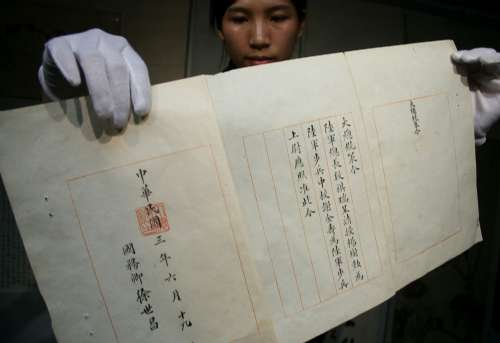 大總統策令
大總統策令
陸軍總長段祺瑞呈請授楊為
陸軍步兵中校金壽為陸軍步兵
上尉應照准此令
中華民國三年六月十九
國務卿徐世昌